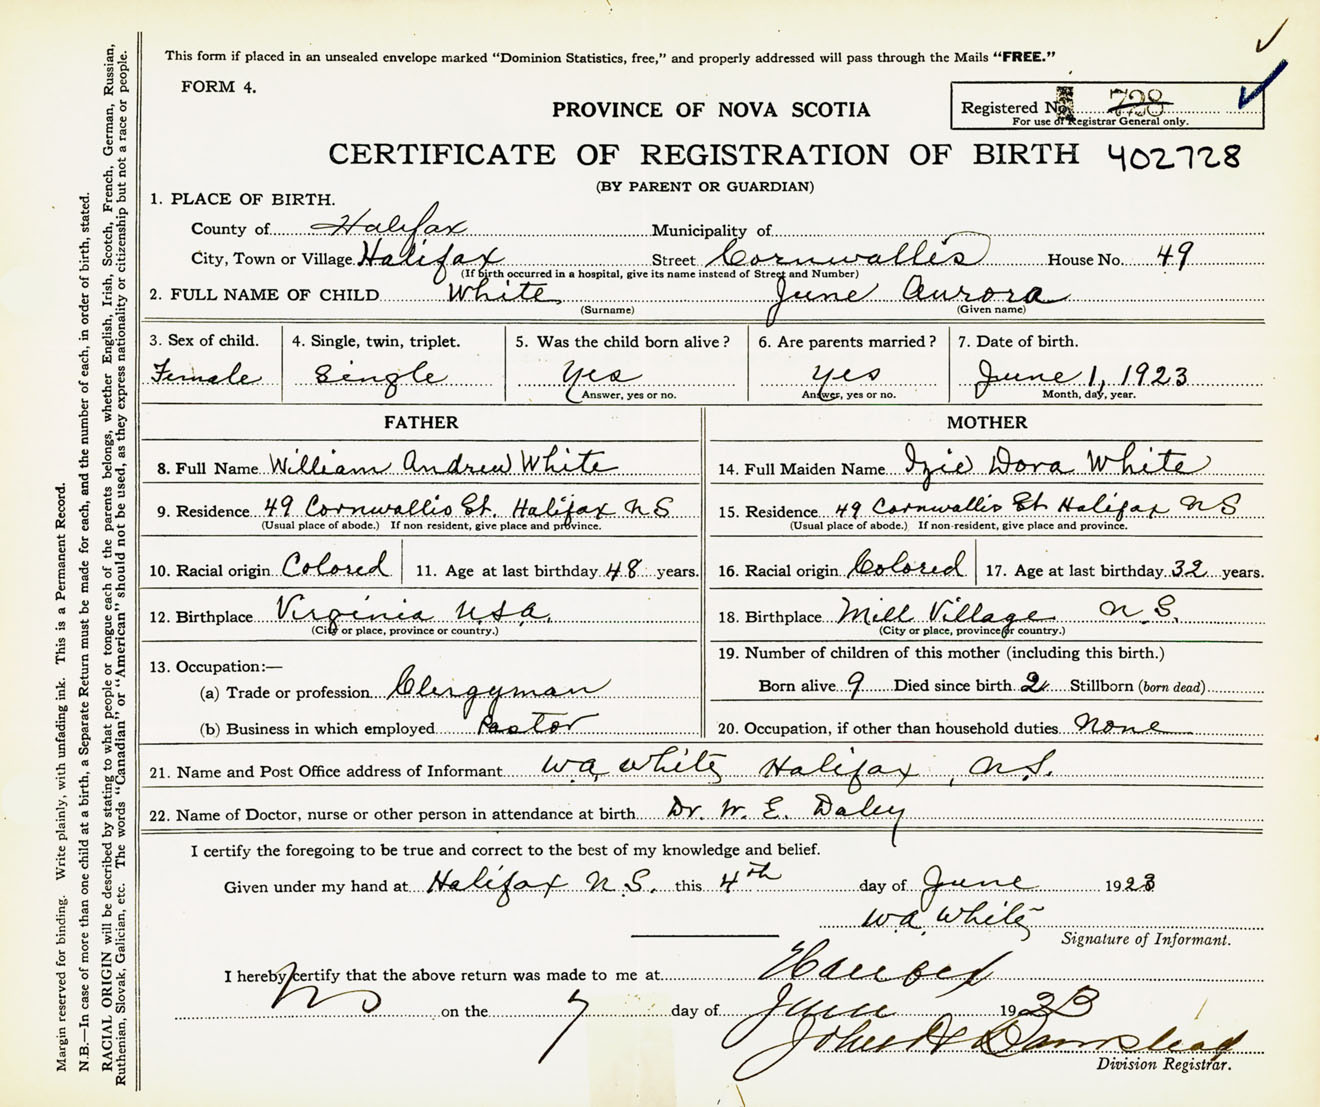 This form if placed in an unsealed envelope marked “Dominion Statistics, free,” and properly addressed will pass through the Mails “FREE.”
FORM 4.
PROVINCE OF NOVA SCOTIA
Registered No. 728
For use of Registrar General only.
CERTIFICATE OF REGISTRATION OF BIRTH 402728
(BY PARENT OR GUARDIAN)
1. PLACE OF BIRTH.
County of Halifax Municipality of
City, Town or Village Halifax Street Cornwallis House No. 49
(If birth occurred in a hospital, give its name instead of Street and Number)
2. FULL NAME OF CHILD White June Aurora
(Surname) (Given name)
3. Sex of child. 4. Single, twin, triplet. 5. Was the child born alive? 6. Are parents married? 7. Date of birth.
Female Single Yes yes June 1, 1923
Answer, yes or no. Answer, yes or no. Month, day, year.
FATHER MOTHER
8. Full Name William Andrew White 14. Full Maiden Name Izie Dora White
9. Residence 49 Cornwallis St. Halifax NS 15. Residence 49 Cornwallis St Halifax NS
(Usual place of abode.) If non resident, give place and province. (Usual place of abode.) If non-resident, give place and province.
10. Racial origin Colored 11. Age at last birthday 48 years. 16. Racial origin Colored 17. Age at last birthday 32 years.
12. Birthplace Virginia U.S.A. 18. Birthplace Mill Village N.S.
(City or place, province or country.) (City or place, province or country.)
13. Occupation:— 19. Number of children of this mother (including this birth.)
(a) Trade or profession Clergyman Born alive 9 Died since birth 2 Stillborn (born dead)
(b) Business in which employed Pastor 20. Occupation, if other than household duties None
21. Name and Post Office address of Informant W.A. White Halifax, N.S.
22. Name of Doctor, nurse or other person in attendance at birth Dr. W. E. Daley
I certify the foregoing to be true and correct to the best of my knowledge and belief.
Given under my hand at Halifax N.S. this 4th day of June 1923
W.A. White
Signature of Informant.
I hereby certify that the above return was made to me at Halifax
NS on the 7 day of June 1923
John A Barnstead
Division Registrar.
Margin reserved for binding. Write plainly, with unfading ink. This is a Permanent Record.
N.B.—In case of more than one child at a birth, a Separate Return must be made for each, and the number of each, in order of birth, stated.
RACIAL ORIGIN will be described by stating to what people or tongue each of the parents belongs, whether English, Irish, Scotch, French, German, Russian,
Ruthenian, Slovak, Galician, etc. The words “Canadian” or “American” should not be used, as they express nationality or citizenship but not a race or people.